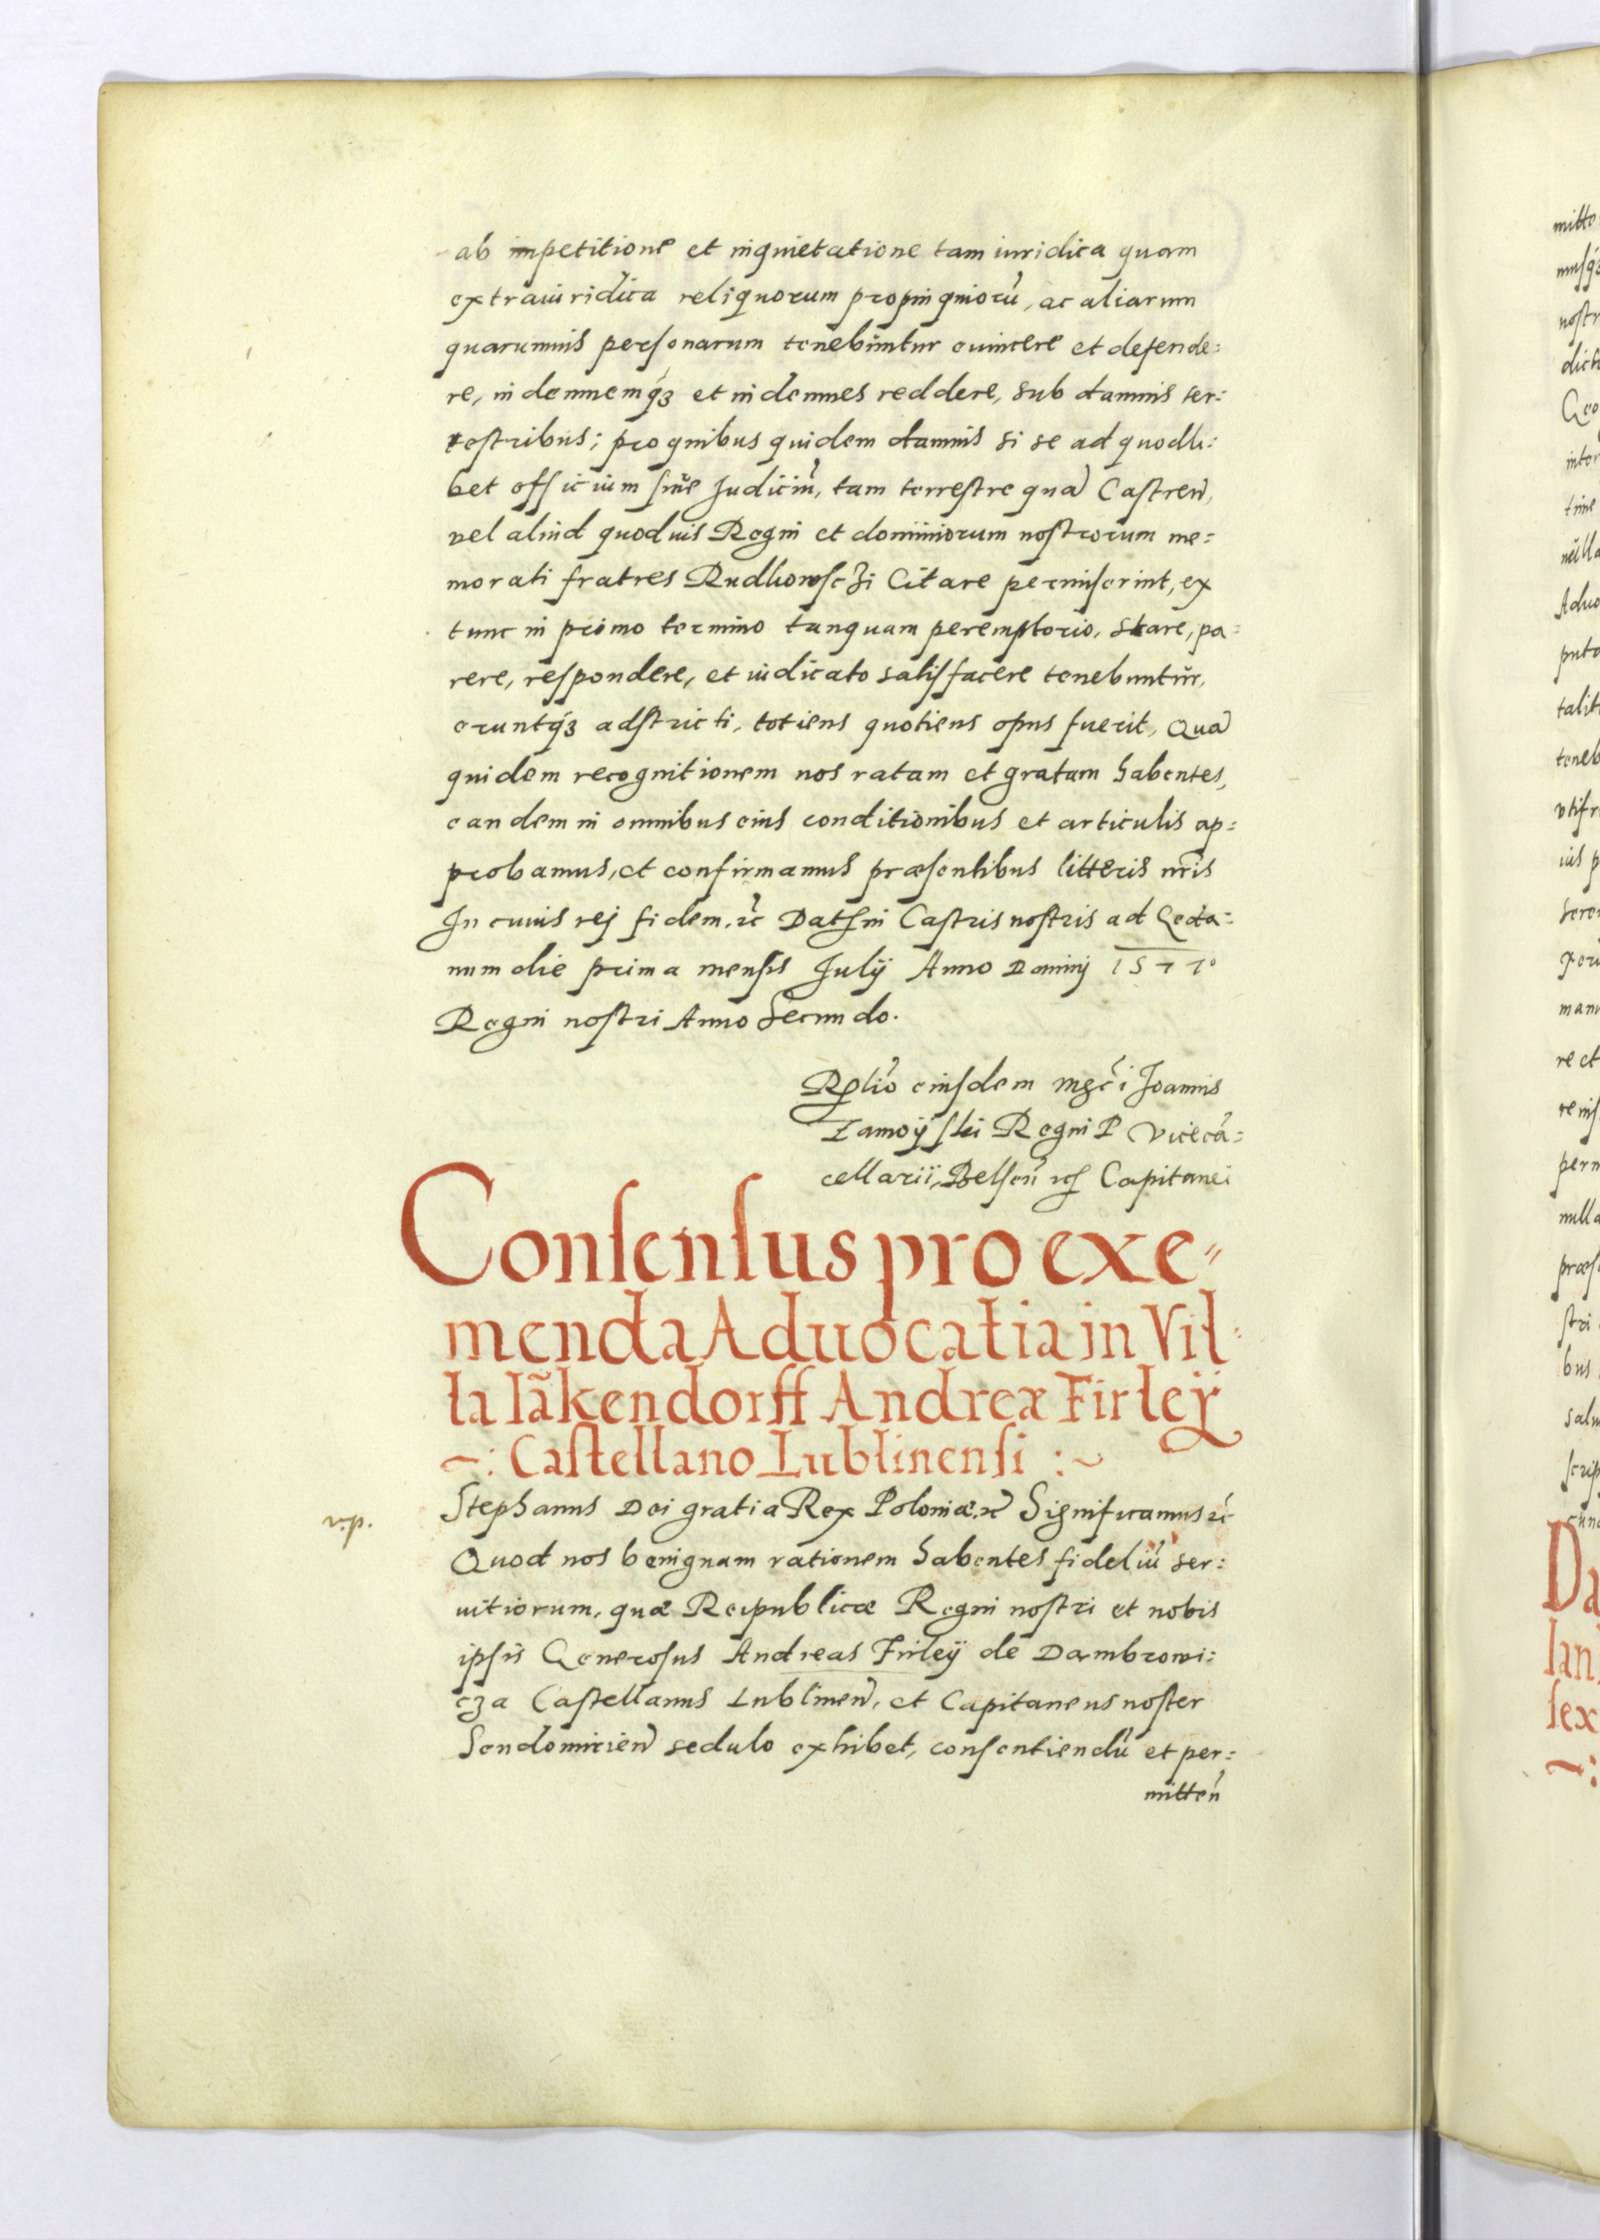 ab impetitione et inquietatione tam iuridica quam
extraiuridica reliquorum propinquiorũ, ac aliarum
quarumuis personarum tenebimtur euincere et defende:
re, indemnemq́ꝫ et indemnes reddere, sub damnis ter:
restribus; pro quibus quidem damnis si se ad quodli:
bet officium siue Judiciũ, tam terrestre quã Castreñ,
vel aliud quoduis Regni et dominiorum nostrorum me:
morati fratres Rudkowsczi Citare permiserint, ex
tunc in primo termino tanquam peremptorio, stare, pa:
rere, respondere, et iudicato satisfacere tenebuntur,
eruntq́ꝫ adstricti, totiens quotiens opus fuerit, Quã
quidem recognitionem nos ratam et gratam habentes,
eandem in omnibus eius conditionibus et articulis ap:
probamus, et confirmamus præsentibus litteris nr̃is
In cuius rej fidem. ꝛc̃ Dat in Castris nostris ad Geda:
num die prima mensis Julÿ Anno Dominj 1577º
Regni nostri Anno Secundo.
Rẽlio eiusdem mgc̃i Joannis
Zamoÿski Regni P Vicecã:
cellarii, Belseñ ꝛc Capitanei
Consensus pro exe:
menda Aduocatia in Vil:
la Lãkendorff Andreæ Firleÿ
~: Castellano Lublinensi :~
v.p.
Stephanus Dei gratia Rex Poloniæ. ꝛc̃ Significamus ꝛc̃
Quod nos benignam rationem habentes fideliũ ser:
uitiorum, quæ Reipublicæ Regni nostri et nobis
ipsis Generosus Andreas Firleÿ de Dambrowi:
cza Castellanus Lublineñ, et Capitaneus noster
Sendomirieñ sedulo exhibet, consentiendũ et per:
mitteñ